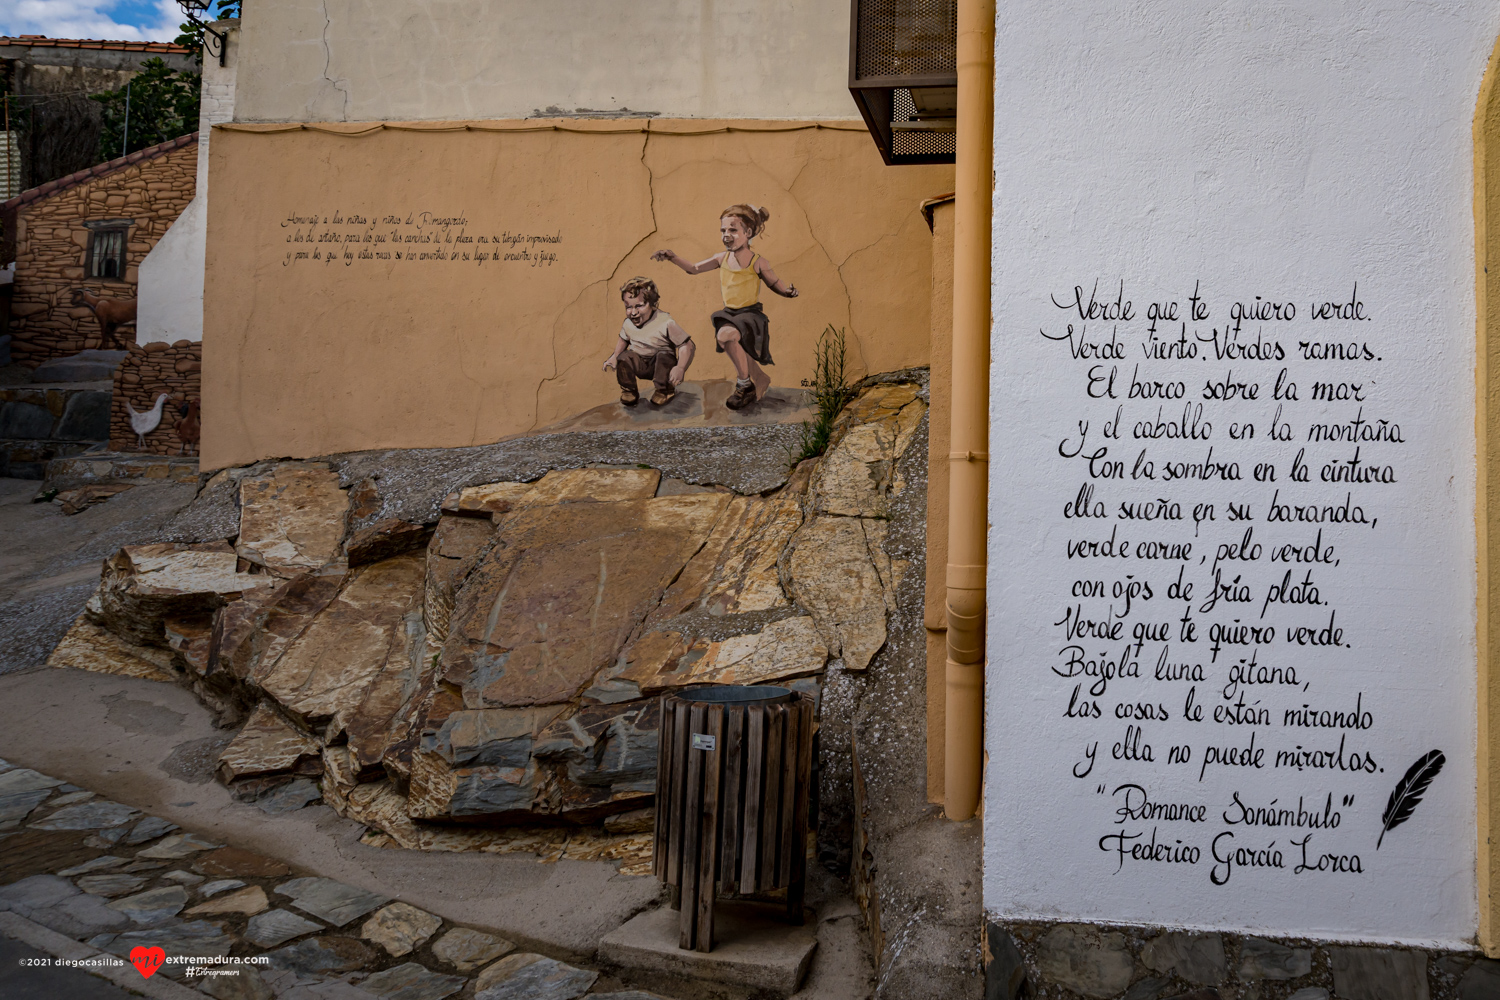 Homenaje a las niñas y niños de Romangordo;
a los de antaño, para los que "las canchas" de la plaza era su tobogán improvisado
y para los que hoy estas rocas se han convertido en su lugar de encuentro y juego.
Verde que te quiero verde.
Verde viento. Verdes ramas.
El barco sobre la mar
y el caballo en la montaña
Con la sombra en la cintura
ella sueña en su baranda,
verde carne, pelo verde,
con ojos de fría plata.
Verde que te quiero verde.
Bajo la luna gitana,
las cosas le están mirando
y ella no puede mirarlas.
"Romance Sonámbulo"
Federico García Lorca
©2021 diegocasillas mi extremadura.com
#Extregramers